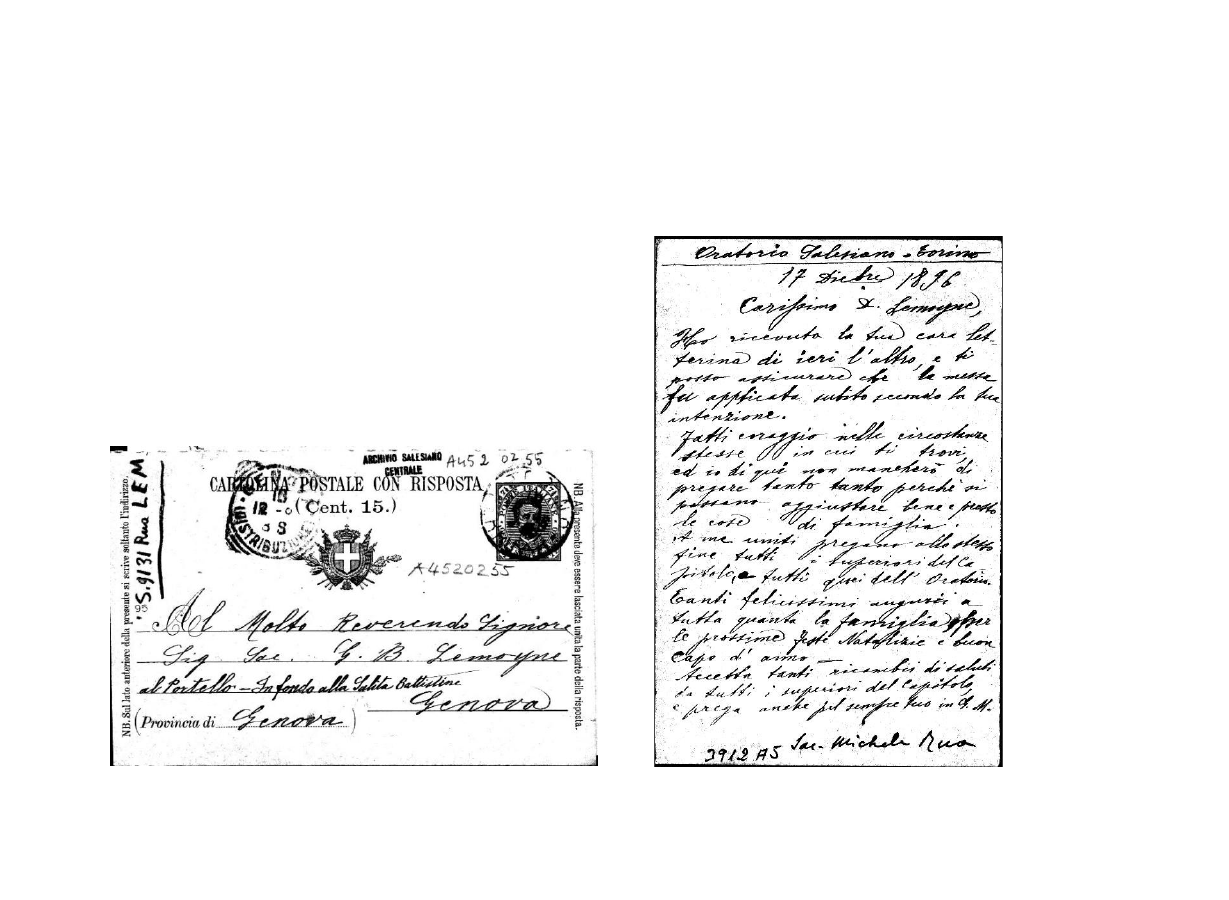 ARCHIVIO SALESIANO
CENTRALE
A452 02 55
CARTOLINA POSTALE CON RISPOSTA
(Cent. 15.)
A4520255
Al Molto Reverendo Signore
Sig Sac. G. B. Lemoyne
al Portello - In fondo alla Salita Battistine
Genova
(Provincia di Genova)
NB. Sul lato anteriore della presente si scrive soltanto l'indirizzo.
S.9131 Rua LEM
95
NB. Alla presente deve essere lasciata unita la parte della risposta.
DISTRIBUZIONE
Oratorio Salesiano - Torino
17 Dicbre 1896
Carissimo D. Lemoyne,
Ho ricevuto la tua cara let-
terina di ieri l'altro, e ti
posso assicurare che la messa
fu applicata subito secondo la tua
intenzione.
Fatti coraggio nelle circostanze
stesse in cui ti trovi,
ed io di quà non mancherò di
pregare tanto tanto perchè si
possano aggiustare bene e presto
le cose di famiglia.
A me uniti pregano allo stesso
fine tutti i superiori del Ca
pitolo, e tutti quei dell' Oratorio.
Tanti felicissimi augurii a
tutta quanta la famiglia per
le prossime Feste Natalizie e buon
Capo d' anno —
Accetta tanti ricambii di saluti
da tutti i superiori del Capitolo,
e prega anche pel sempre tuo in G. M.
Sac. Michele Rua
3912 A5